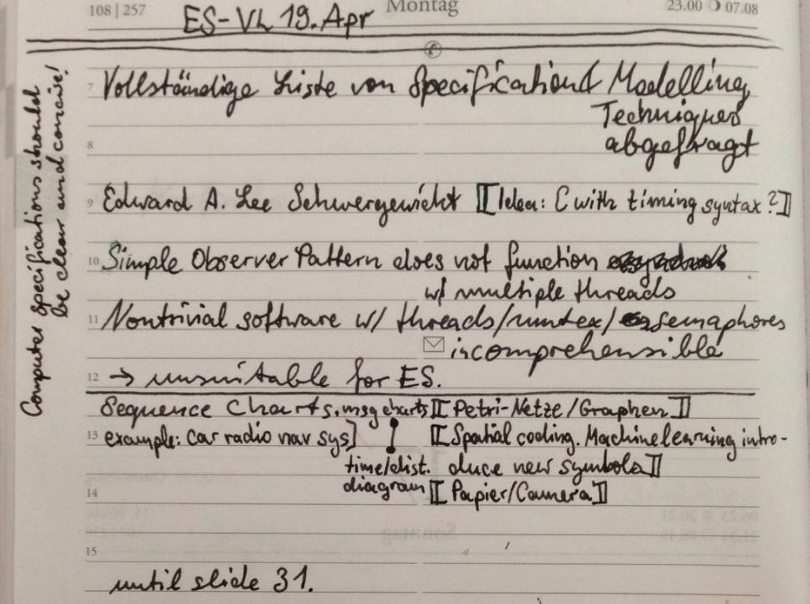 108 | 257 Montag 23.00 07.08
ES-VL 19. Apr
Computer specifications should
be clear and concise!
7 Vollständige Liste von Specification & Modelling
Techniques
8 abgefragt
9 Edward A. Lee Schwergewicht [[Idea: C with timing syntax?]]
10 Simple Observer Pattern does not function
w/ multiple threads
11 Nontrivial software w/ threads/mutex/semaphores
is incomprehensible
12 → unsuitable for ES.
Sequence Charts. msg charts [[Petri-Netze/Graphen]]
13 example: car radio nav sys] [[Spatial coding. Machine learning intro-
time/dist. duce new symbols]]
diagram [[Papier/Camera]]
14
15
until slide 31.